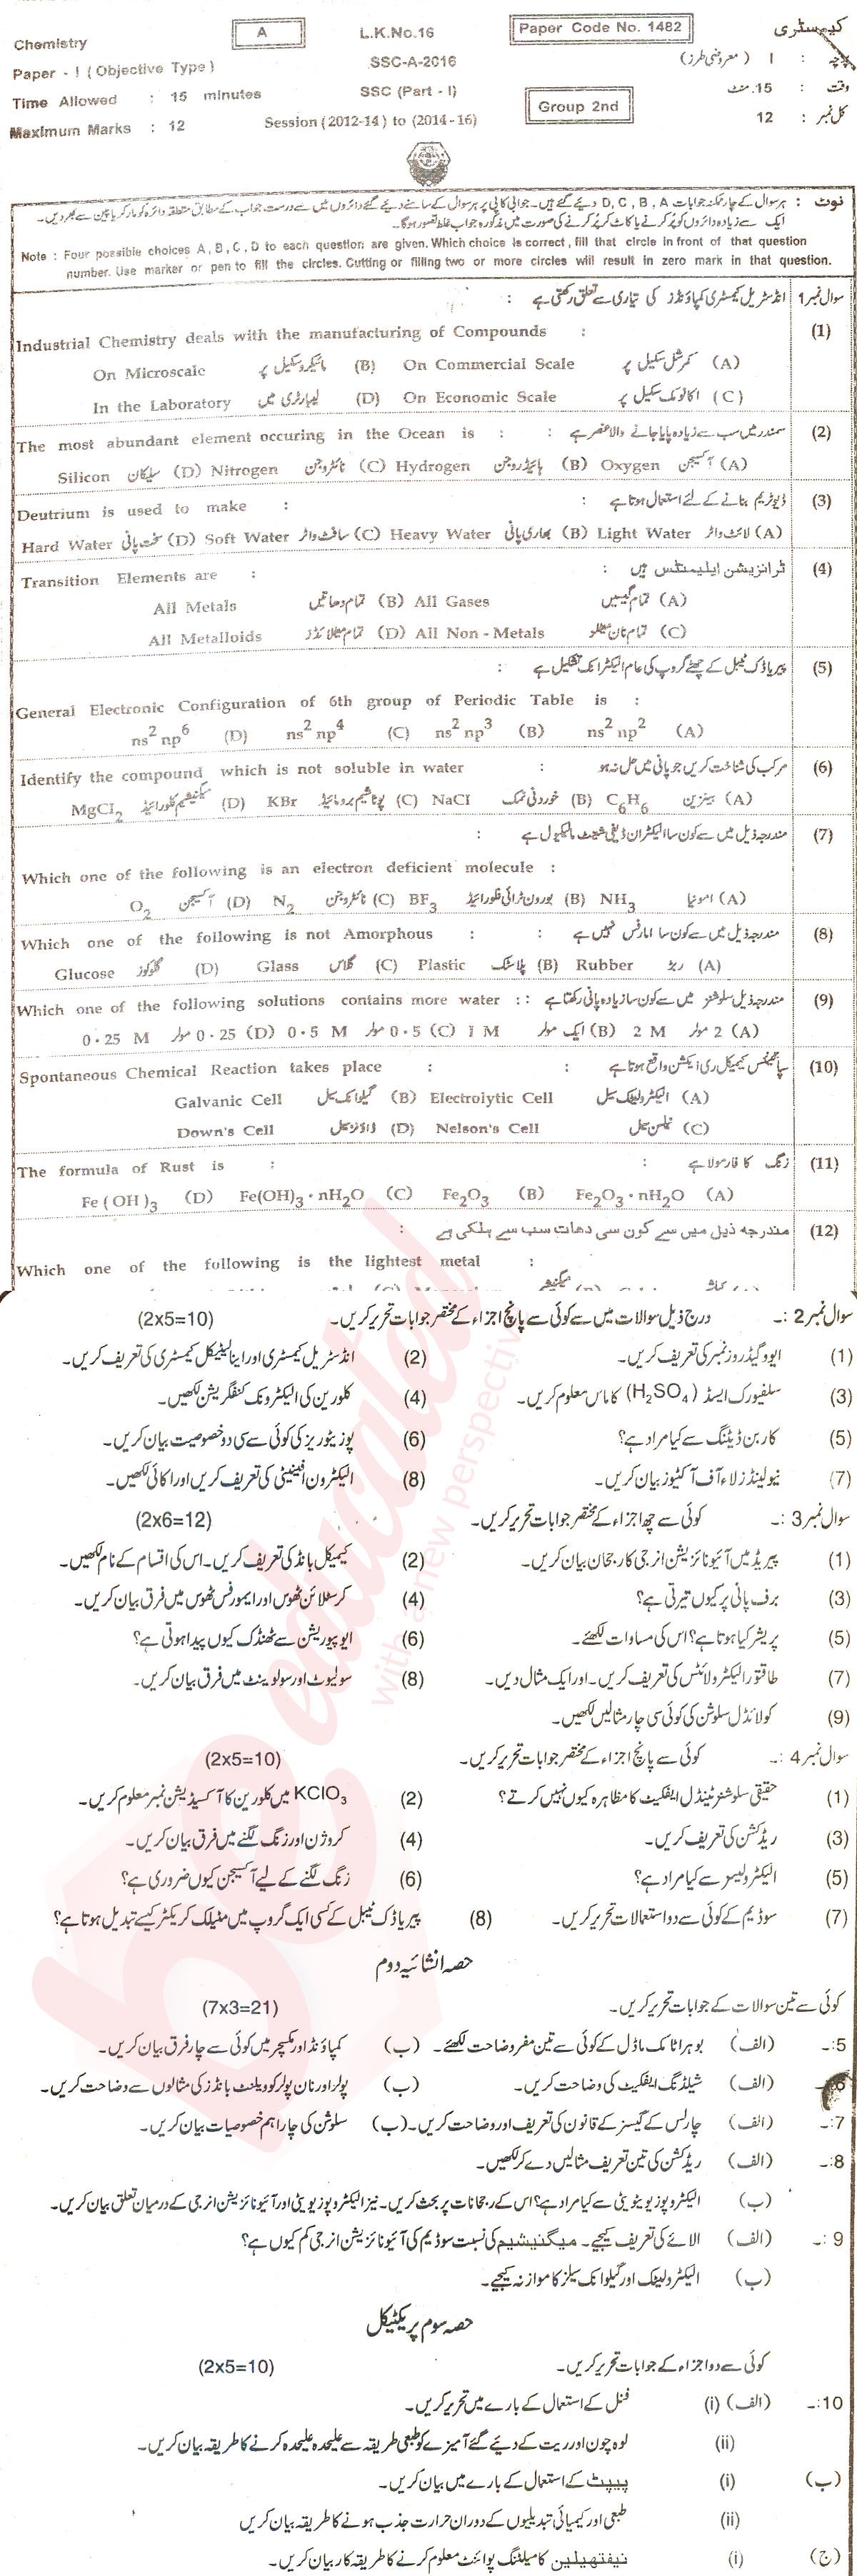 Chemistry A L.K.No.16 Paper Code No. 1482 کیمسٹری
Paper - I ( Objective Type ) SSC-A-2016 پرچہ : I ( معروضی طرز )
Time Allowed : 15 minutes SSC (Part - I) وقت : 15 منٹ
Maximum Marks : 12 Session (2012-14) to (2014-16) Group 2nd کل نمبر : 12
نوٹ : ہر سوال کے چار ممکنہ جوابات D , C , B , A دیئے گئے ہیں۔ جوابی کاپی پر ہر سوال کے سامنے دیئے گئے دائروں میں سے درست جواب کے مطابق متعلقہ دائرہ کو مارکر یا پین سے بھر دیں۔
ایک سے زیادہ دائروں کو پُر کرنے یا کاٹ کر پُر کرنے کی صورت میں مذکورہ جواب غلط تصور ہوگا۔
Note : Four possible choices A , B , C , D to each question are given. Which choice is correct , fill that circle in front of that question
number. Use marker or pen to fill the circles. Cutting or filling two or more circles will result in zero mark in that question.
سوال نمبر 1 انڈسٹریل کیمسٹری کمپاؤنڈز کی تیاری سے تعلق رکھتی ہے :
Industrial Chemistry deals with the manufacturing of Compounds : (1)
On Microscale مائیکروسکیل پر (B) On Commercial Scale کمرشل سکیل پر (A)
In the Laboratory لیبارٹری میں (D) On Economic Scale اکانومک سکیل پر (C)
The most abundant element occuring in the Ocean is : : سمندر میں سب سے زیادہ پایا جانے والا عنصر ہے (2)
Silicon سلیکان (D) Nitrogen نائٹروجن (C) Hydrogen ہائیڈروجن (B) Oxygen آکسیجن (A)
Deutrium is used to make : : ڈیوٹریم بنانے کے لئے استعمال ہوتا ہے (3)
Hard Water سخت پانی (D) Soft Water سافٹ واٹر (C) Heavy Water بھاری پانی (B) Light Water لائٹ واٹر (A)
Transition Elements are : : ٹرانزیشن ایلیمنٹس ہیں (4)
All Metals تمام دھاتیں (B) All Gases تمام گیسیں (A)
All Metalloids تمام میٹلائڈز (D) All Non - Metals تمام نان میٹلز (C)
پیریاڈک ٹیبل کے چھٹے گروپ کی عام الیکٹرانک تشکیل ہے : (5)
General Electronic Configuration of 6th group of Periodic Table is :
ns² np⁶ (D) ns² np⁴ (C) ns² np³ (B) ns² np² (A)
Identify the compound which is not soluble in water : مرکب کی شناخت کریں جو پانی میں حل نہ ہو (6)
MgCl₂ میگنیشیم کلورائیڈ (D) KBr پوٹاشیم برومائیڈ (C) NaCl خوردنی نمک (B) C₆H₆ بینزین (A)
مندرجہ ذیل میں سے کون سا الیکٹران ڈیفی شینٹ مالیکیول ہے : (7)
Which one of the following is an electron deficient molecule :
O₂ آکسیجن (D) N₂ نائٹروجن (C) BF₃ بورون ٹرائی فلورائیڈ (B) NH₃ امونیا (A)
Which one of the following is not Amorphous : : مندرجہ ذیل میں سے کون سا امارفس نہیں ہے (8)
Glucose گلوکوز (D) Glass گلاس (C) Plastic پلاسٹک (B) Rubber ربڑ (A)
Which one of the following solutions contains more water : : مندرجہ ذیل سلوشنز میں سے کون سا زیادہ پانی رکھتا ہے (9)
0.25 M 0.25 مولر (D) 0.5 M 0.5 مولر (C) 1 M ایک مولر (B) 2 M 2 مولر (A)
Spontaneous Chemical Reaction takes place : : سپانٹینس کیمیکل ری ایکشن واقع ہوتا ہے (10)
Galvanic Cell گیلوانک سیل (B) Electrolytic Cell الیکٹرولیٹک سیل (A)
Down's Cell ڈاؤنز سیل (D) Nelson's Cell نیلسن سیل (C)
The formula of Rust is : : زنگ کا فارمولا ہے (11)
Fe ( OH )₃ (D) Fe(OH)₃ · nH₂O (C) Fe₂O₃ (B) Fe₂O₃ · nH₂O (A)
مندرجہ ذیل میں سے کون سی دھات سب سے ہلکی ہے : (12)
Which one of the following is the lightest metal :
سوال نمبر 2 :۔ درج ذیل سوالات میں سے کوئی سے پانچ اجزاء کے مختصر جوابات تحریر کریں۔ (2x5=10)
(1) ایووگیڈروز نمبر کی تعریف کریں۔ (2) انڈسٹریل کیمسٹری اور اینالیٹیکل کیمسٹری کی تعریف کریں۔
(3) سلفیورک ایسڈ (H₂SO₄) کا ماس معلوم کریں۔ (4) کلورین کی الیکٹرونک کنفگریشن لکھیں۔
(5) کاربن ڈیٹنگ سے کیا مراد ہے؟ (6) پوزیٹوریز کی کوئی سی دو خصوصیت بیان کریں۔
(7) نیولینڈز لاء آف آکٹیوز بیان کریں۔ (8) الیکٹرون افینیٹی کی تعریف کریں اور اکائی لکھیں۔
سوال نمبر 3 :۔ کوئی سے چھ اجزاء کے مختصر جوابات تحریر کریں۔ (2x6=12)
(1) پیریڈ میں آئیونائزیشن انرجی کا رجحان بیان کریں۔ (2) کیمیکل بانڈ کی تعریف کریں۔ اس کی اقسام کے نام لکھیں۔
(3) برف پانی پر کیوں تیرتی ہے؟ (4) کرسٹلائن ٹھوس اور ایمورفس ٹھوس میں فرق بیان کریں۔
(5) پریشر کیا ہوتا ہے؟ اس کی مساوات لکھئے۔ (6) ایوپوریشن سے ٹھنڈک کیوں پیدا ہوتی ہے؟
(7) طاقتور الیکٹرولائٹس کی تعریف کریں۔ اور ایک مثال دیں۔ (8) سولیوٹ اور سولوینٹ میں فرق بیان کریں۔
(9) کولائڈل سلوشن کی کوئی سی چار مثالیں لکھیں۔
سوال نمبر 4 :۔ کوئی سے پانچ اجزاء کے مختصر جوابات تحریر کریں۔ (2x5=10)
(1) حقیقی سلوشنز ٹینڈل ایفیکٹ کا مظاہرہ کیوں نہیں کرتے؟ (2) KClO₃ میں کلورین کا آکسیڈیشن نمبر معلوم کریں۔
(3) ریڈکشن کی تعریف کریں۔ (4) کروژن اور زنگ لگنے میں فرق بیان کریں۔
(5) الیکٹرولیسز سے کیا مراد ہے؟ (6) زنگ لگنے کے لیے آکسیجن کیوں ضروری ہے؟
(7) سوڈیم کے کوئی سے دو استعمالات تحریر کریں۔ (8) پیریاڈک ٹیبل کے کسی ایک گروپ میں مٹیلک کریکٹر کیسے تبدیل ہوتا ہے؟
حصہ انشائیہ دوم
کوئی سے تین سوالات کے جوابات تحریر کریں۔ (7x3=21)
5:۔ (الف) بوہر اٹامک ماڈل کے کوئی سے تین مفروضاحت لکھئے۔ (ب) کمپاؤنڈ اور مکسچر میں کوئی سے چار فرق بیان کریں۔
6:۔ (الف) شیلڈنگ ایفیکٹ کی وضاحت کریں۔ (ب) پولر اور نان پولر کوویلنٹ بانڈز کی مثالوں سے وضاحت کریں۔
7:۔ (الف) چارلس کے گیسز کے قانون کی تعریف اور وضاحت کریں۔ (ب) سلوشن کی چار اہم خصوصیات بیان کریں۔
8:۔ (الف) ریڈکشن کی تین تعریف مثالیں دے کر لکھیں۔
(ب) الیکٹروپوزیٹویٹی سے کیا مراد ہے؟ اس کے رجحانات پر بحث کریں۔ نیز الیکٹروپوزیٹویٹی اور آئیونائزیشن انرجی کے درمیان تعلق بیان کریں۔
9 :۔ (الف) الائے کی تعریف کیجیے۔ میگنیشیم کی نسبت سوڈیم کی آئیونائزیشن انرجی کم کیوں ہے؟
(ب) الیکٹرولیٹک اور گیلوانک سیلز کا موازنہ کیجیے۔
حصہ سوم پریکٹیکل
کوئی سے دو اجزاء کے جوابات تحریر کریں۔ (2x5=10)
10:۔ (الف) (i) فنل کے استعمال کے بارے میں تحریر کریں۔
(ii) لوہ چون اور ریت کے دیئے گئے آمیزے کو طبعی طریقہ سے علیحدہ علیحدہ کرنے کا طریقہ بیان کریں۔
(ب) (i) پیپٹ کے استعمال کے بارے میں بیان کریں۔
(ii) طبعی اور کیمیائی تبدیلیوں کے دوران حرارت جذب ہونے کا طریقہ بیان کریں
(ج) (i) نیفتھیلین کا میلٹنگ پوائنٹ معلوم کرنے کا طریقہ کار بیان کریں۔
be educated
with a new perspective